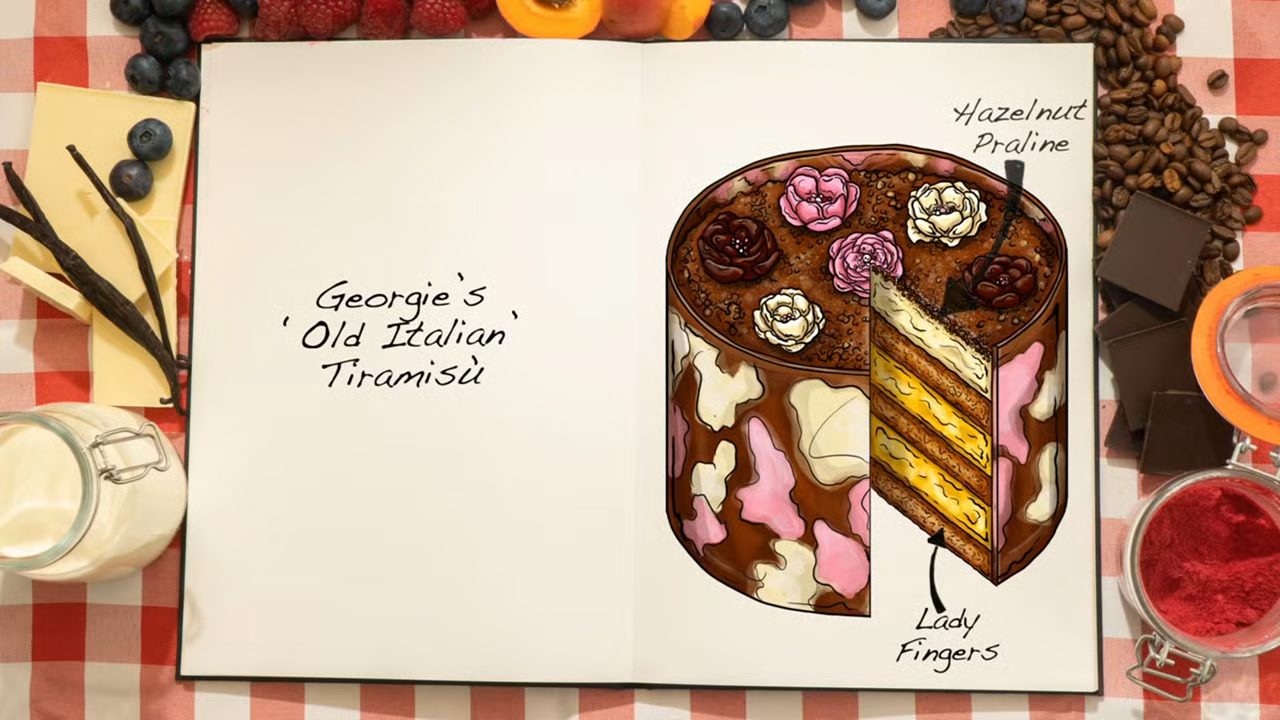 Georgie's
'Old Italian'
Tiramisù
Hazelnut
Praline
Lady
Fingers